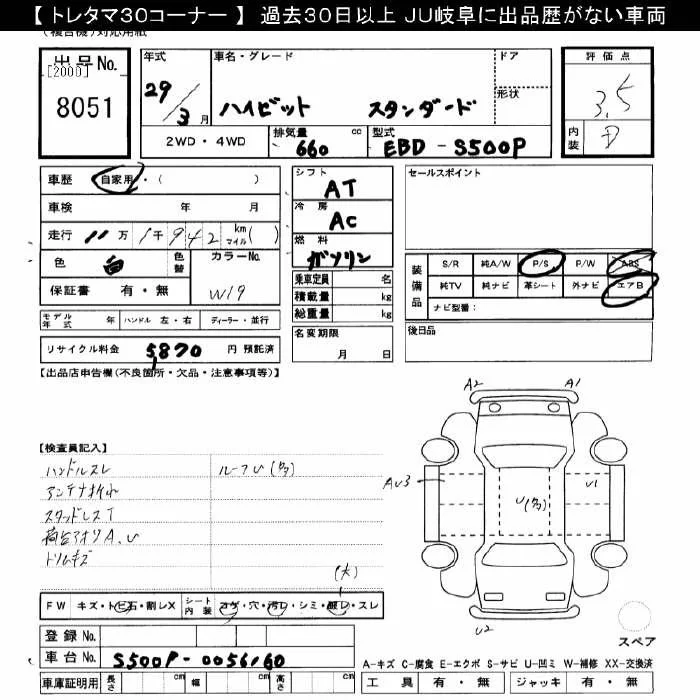 【 トレタマ30コーナー 】 過去30日以上 JU岐阜に出品歴がない車両
(複合機)対応用紙
出品No. [2000] 8051
年式 29/3月
車名・グレード ハイゼット スタンダード
ドア
形状
評価点 3.5
内装 D
2WD・4WD
排気量 660 cc
型式 EBD-S500P
車歴 自家用・( )
車検 年 月
走行 11万1千942 km マイル( )
色 白 色替 カラーNo. W19
保証書 有・無
モデル年式 年 ハンドル 左・右 ディーラー・並行
リサイクル料金 5,870 円 預託済
シフト AT
冷房 AC
燃料 ガソリン
乗車定員 名
積載量 kg
総重量 kg
名変期限 月 日
セールスポイント
装備品
S/R 純A/W P/S P/W ABS
純TV 純ナビ 革シート 外ナビ エアB
ナビ型番:
後日品
【出品店申告欄(不良箇所・欠品・注意事項等)】
【検査員記入】
ハンドルスレ ルーフU(多)
アンテナ折れ
スタッドレスT
荷台アオリA、U
トリムキズ
(大)
FW キズ・トビ石・割レX シート内装 コゲ・穴・汚レ・シミ・破レ・スレ
登録No.
車台No. S500P-0056160
車庫証明用 長さ cm 幅 cm 高さ cm
A2 A1
AU3 U(多) U1
U2
スペア
A-キズ C-腐食 E-エクボ S-サビ U-凹ミ W-補修 XX-交換済
工具 有・無 ジャッキ 有・無